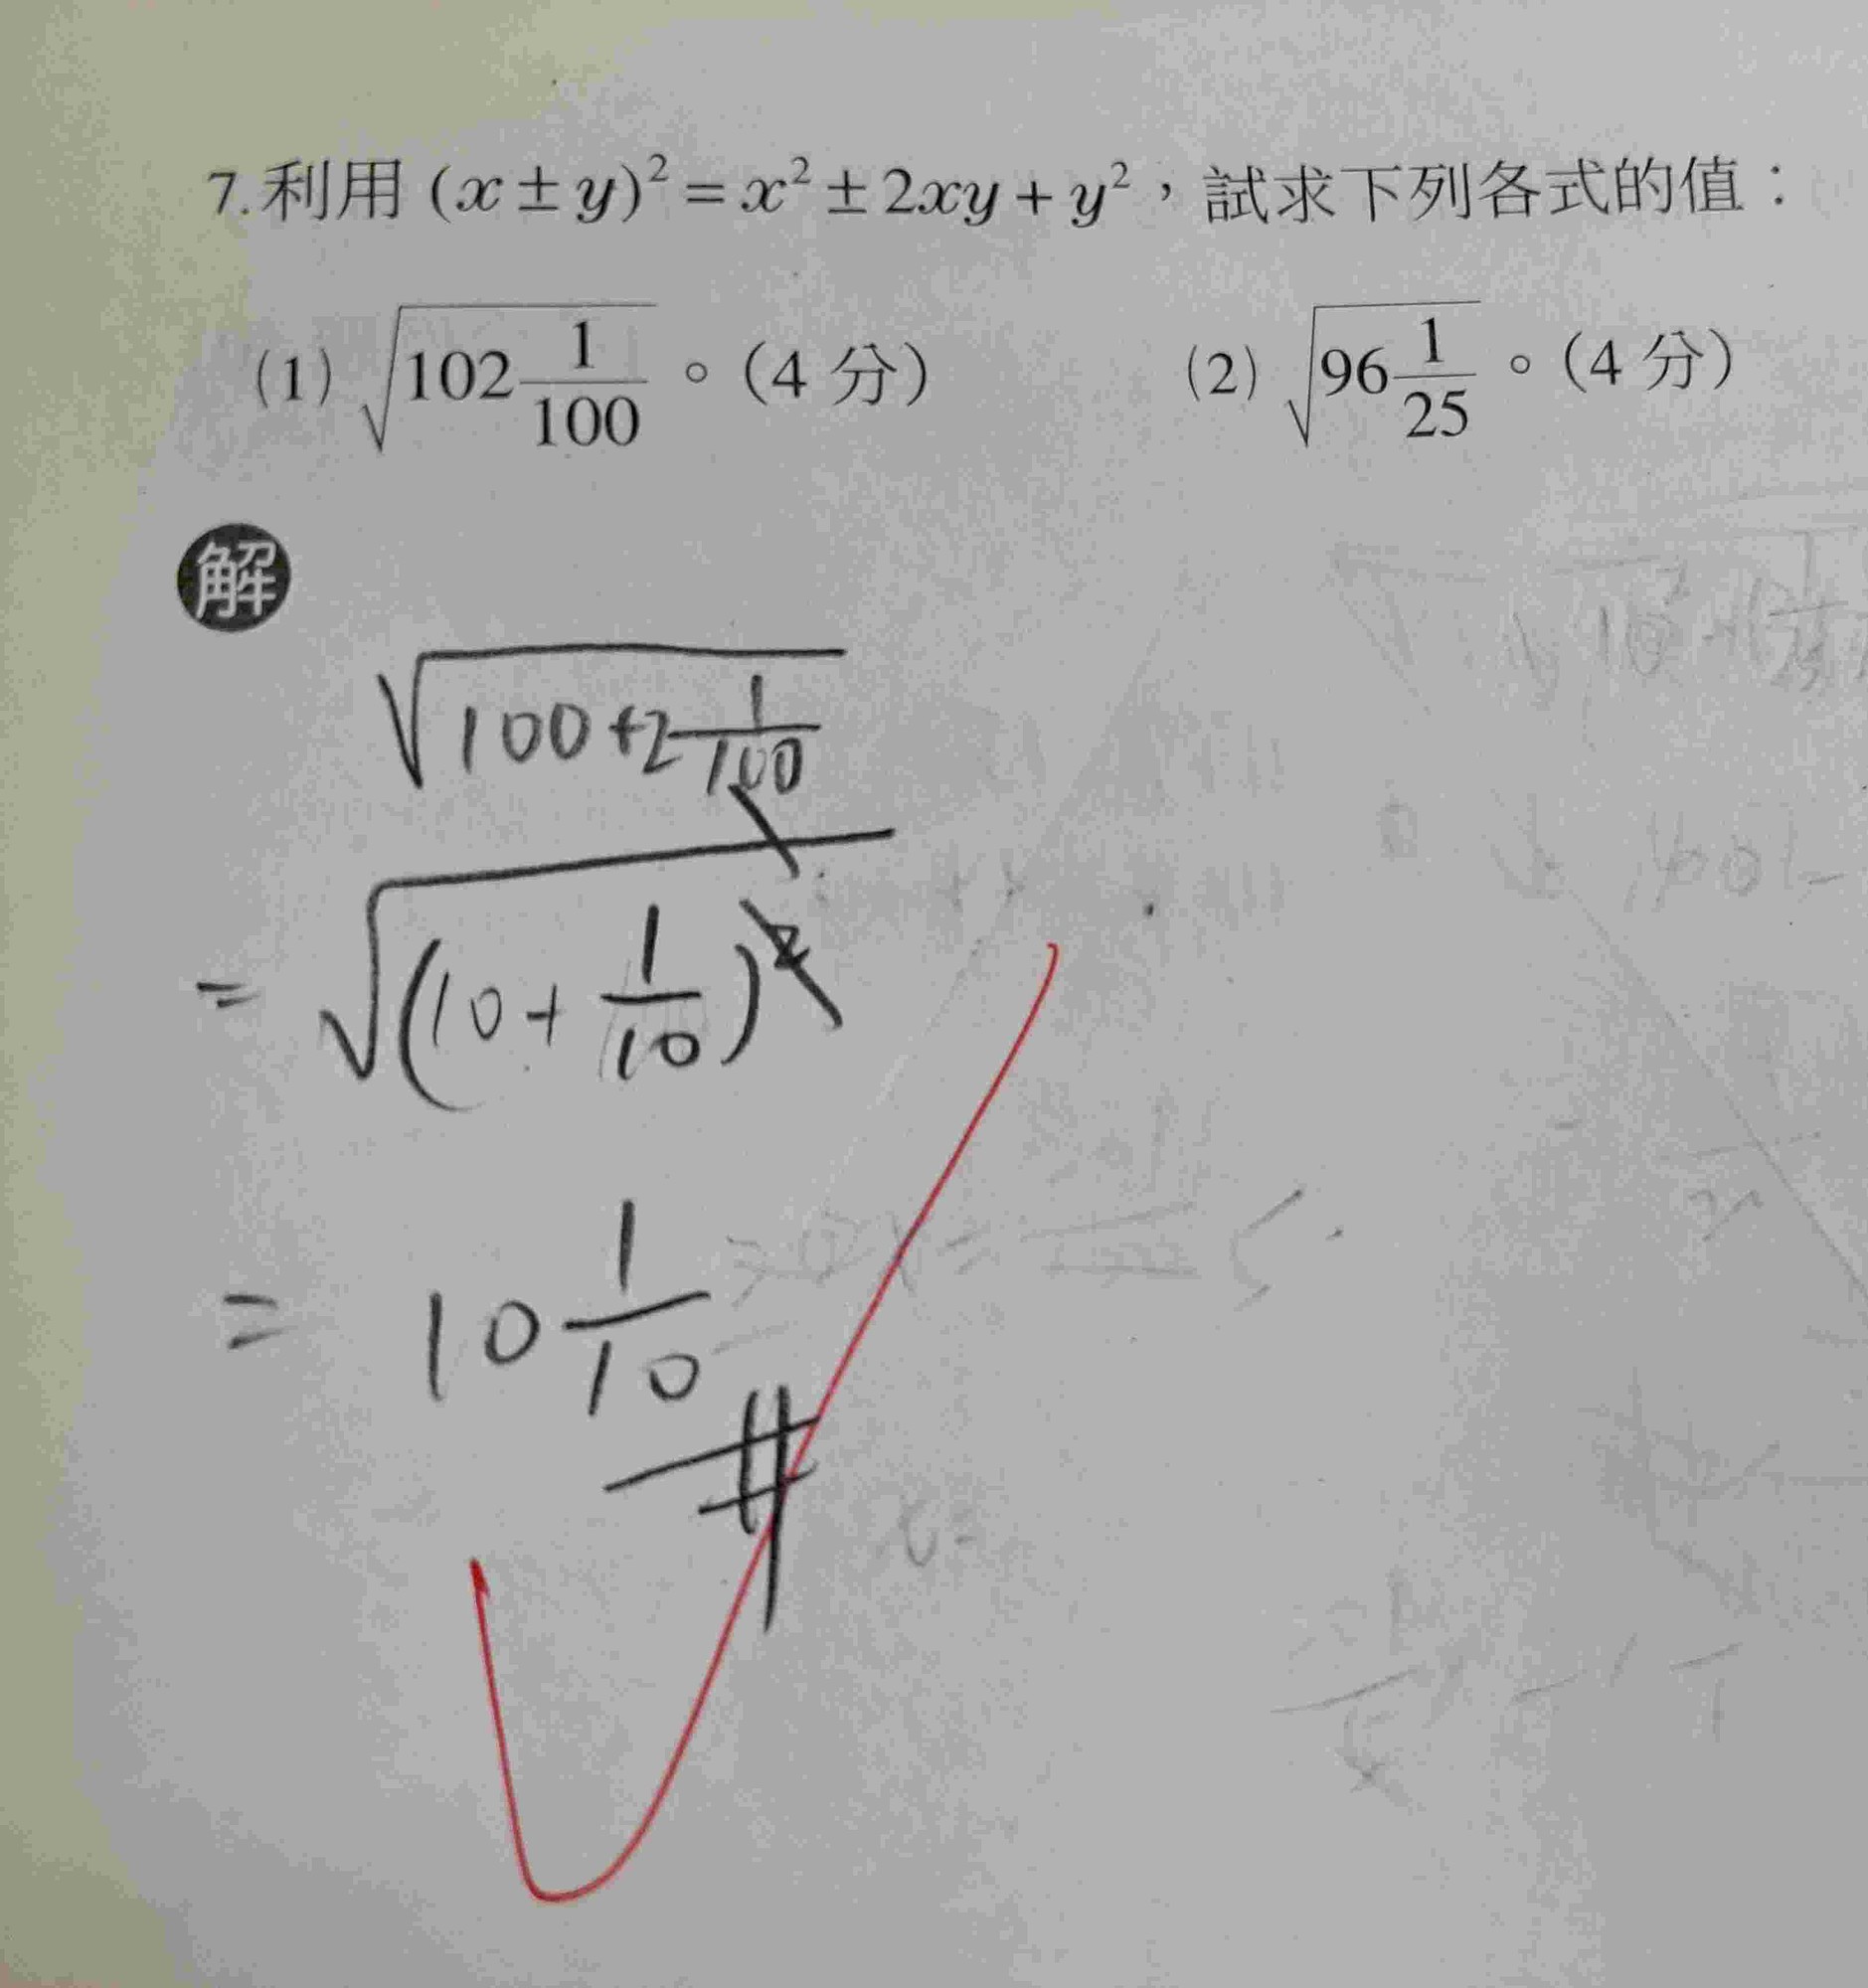 7.利用 (x±y)² = x² ± 2xy + y²，試求下列各式的值：
(1) √(102 1/100)。(4 分) (2) √(96 1/25)。(4 分)
解
√(100+2 1/100)
= √((10+1/10)²)
= 10 1/10 #